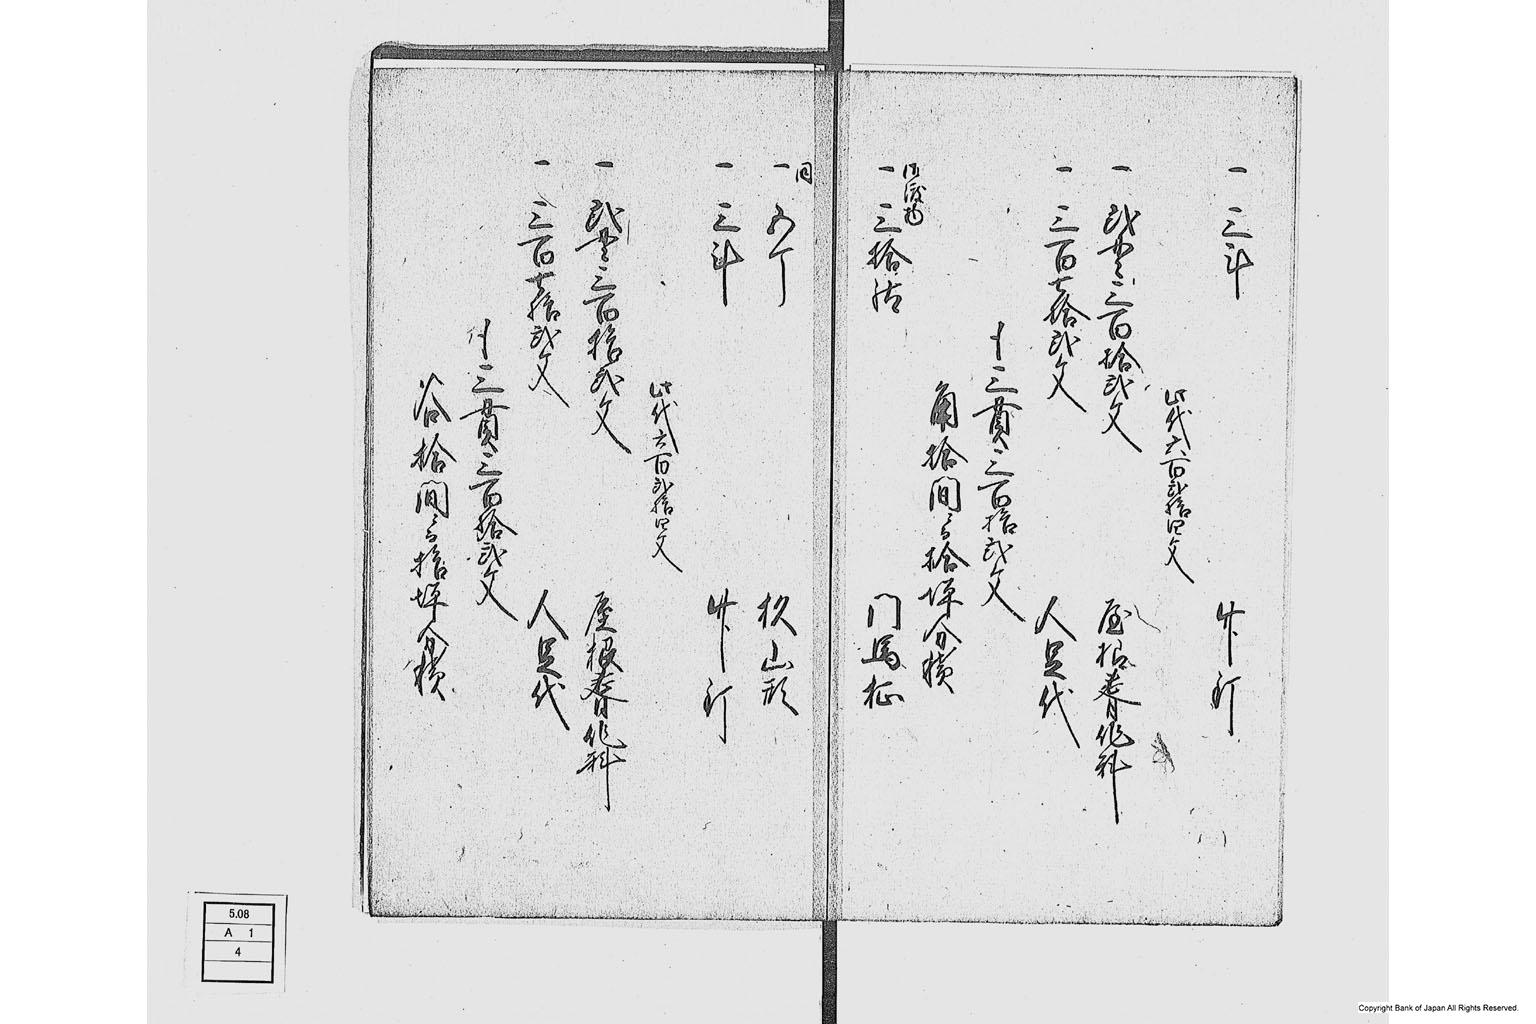 一 三斗 竹釘
此代六百弐拾四文
一 弐貫三百拾弐文 屋根葺作料
一 三百七拾弐文 人足代
〆三貫三百拾弐文
角拾間ニ而拾坪分積
御渡物
一 三拾 門馬柾
同
一 五丁 杉山形
一 三斗 竹釘
此代六百弐拾四文
一 弐貫三百拾弐文 屋根葺作料
一 三百七拾弐文 人足代
〆三貫三百拾弐文
谷拾間ニ而拾坪分積
5.08
A 1
4
Copyright Bank of Japan All Rights Reserved.